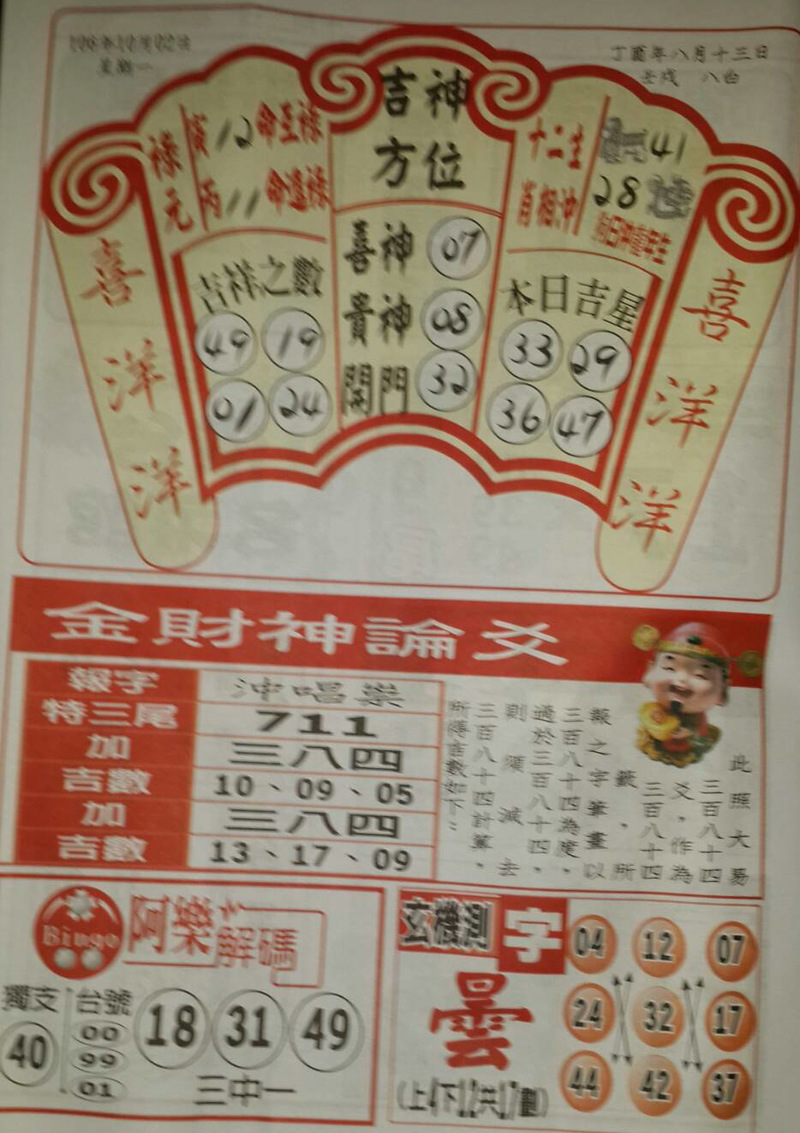 106年10月02日
星期一
丁酉年八月十三日
壬戌 八白
吉神
方位
祿元
寅12命互祿
丙11命進祿
十二生
肖相沖
41
28
喜洋洋
喜洋洋
吉祥之數
49 19
01 24
喜神 07
貴神 08
開門 32
本日吉星
33 29
36 47
金財神論爻
報字 沖唱樂
特三尾 711
加 三八四
吉數 10、09、05
加 三八四
吉數 13、17、09
此照大易
三百八十四
爻，作為
三百八十四
籤，所
報之字筆畫以
三百八十四為度，
過於三百八十四，
則須減去
三百八十四計算，
所得吉數如下：
Bingo
阿樂
解碼
獨支
40
台號
00
99
01
18 31 49
三中一
玄機測字
曇
(上4下12共17劃)
04 12 07
24 32 17
44 42 37